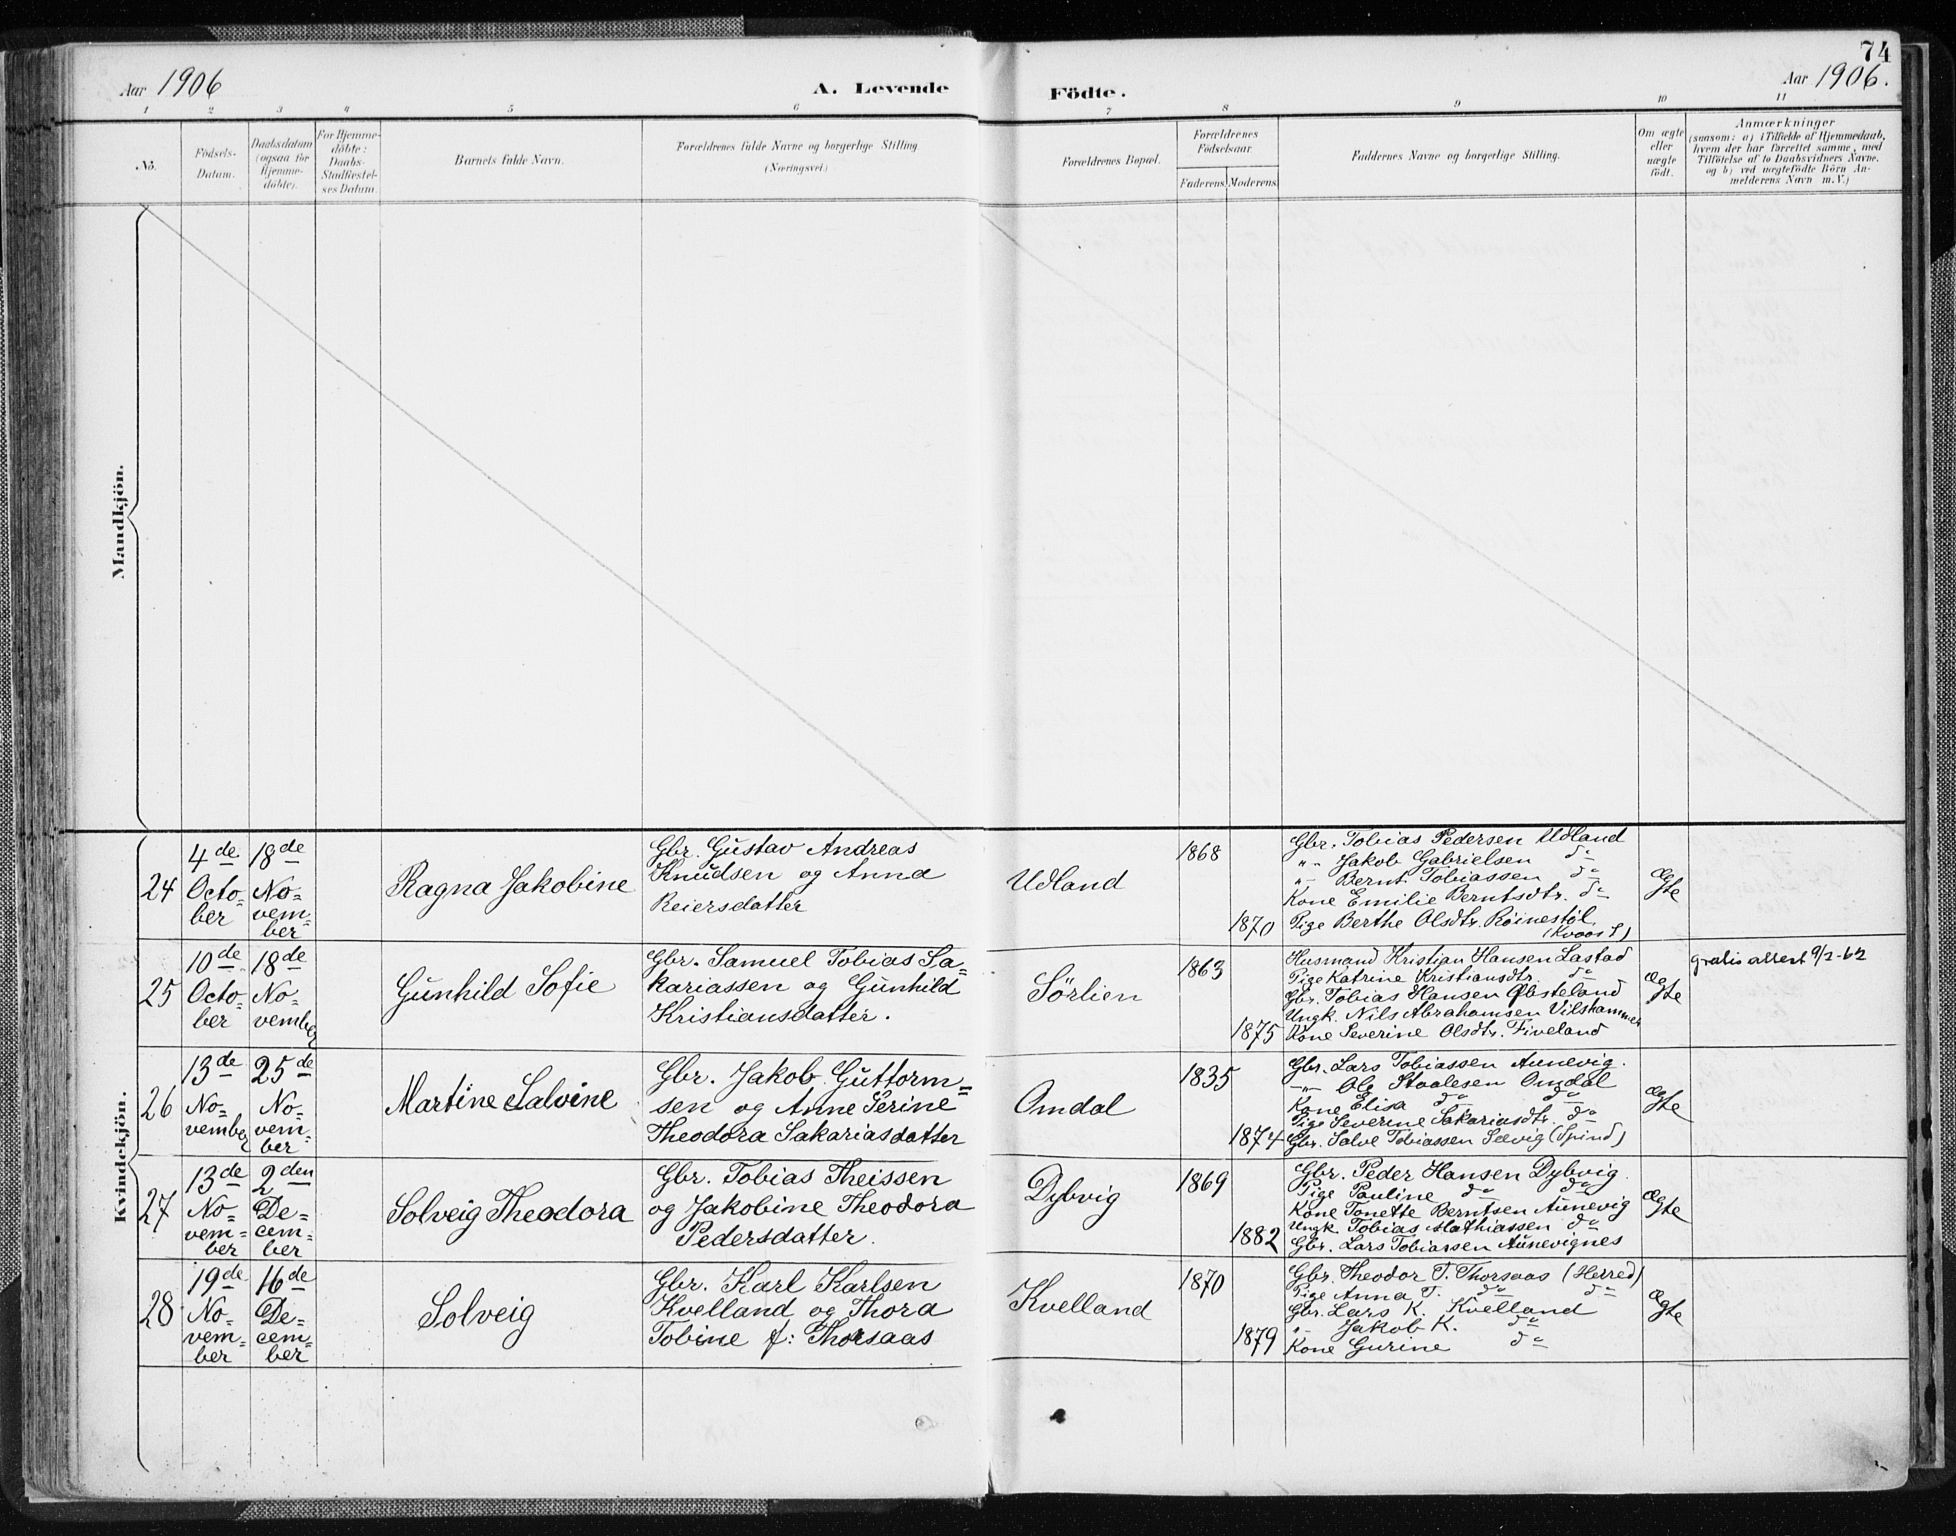 74
Aar 1906
A. Levende
Födte.
Aar 1906.
1 2 3 4 5 6 7 8 9 10 11
No.
Födsels-
Datum.
Daabsdatum
(ogsaa for
Hjemme-
döbte).
For Hjemme-
döbte:
Daabs-
Stadfæstel-
ses Datum.
Barnets fulde Navn.
Forældrenes fulde Navne og borgerlige Stilling.
(Næringsvei.)
Forældrenes Bopæl.
Forældrenes
Födselsaar.
Faderens. Moderens.
Faddernes Navne og borgerlige Stilling.
Om ægte
eller
uægte
födt.
Anmærkninger
(saasom: a) i Tilfælde af Hjemmedaab,
hvem der har forrettet samme, med
Tilföielse af to Daabsvidners Navne,
og b) ved uægtefödte Börn An-
melderens Navn m. V.)
Mandkjön.
Kvindekjön.
24
4de
Octo-
ber
18de
No-
vem-
ber
Ragna Jakobine
Gbr. Gustav Andreas
Knudsen og Anna
Reiersdatter
Udland
1868
1870
Gbr. Tobias Pedersen Udland
"- Jakob Gabrielsen do
"- Bernt Tobiassen do
Kone Emilie Berntsdtr. do
Pige Berthe Olsdtr. Röinestøl
Ægte
25
10de
Octo-
ber
18de
No-
vember
Gunhild Sofie
Gbr. Samuel Tobias Sa-
kariassen og Gunhild
Kristiansdatter.
Sörlien
1863
1875
Husmand Kristian Hansen Lastad
Pige Katrine Kristiansdtr. do
Gbr. Tobias Hansen Øbsteland
Ungk. Nils Abrahamsen Vilshammer
Kone Severine Olsdtr. Fiveland
Ægte
gratis attest 9/2-62
26
13de
No-
vember
25de
No-
vem-
ber
Martine Salvine
Gbr. Jakob Guttorm-
sen og Anne Serine
Theodora Sakariasdatter
Omdal
1835
1874
Gbr. Lars Tobiassen Aunevig.
-"- Ole Staalesen Omdal
Kone Elisa do do
Pige Severine Sakariasdtr. do
Gbr. Salve Tobiassen Selvig (Spind)
Ægte
27
13de
No-
vem-
ber
2den
De-
cem-
ber
Solveig Theodora
Gbr. Tobias Theissen
og Jakobine Theodora
Pedersdatter.
Dybvig
1869
1882
Gbr. Peder Hansen Dybvig.
Pige Pauline do do
Kone Tonette Berntsen Aunevig
Ungk. Tobias Mathiassen do
Gbr. Lars Tobiassen Aunevignes
Ægte
28
19de
No-
vem-
ber
16de
De-
cem-
ber
Solveig
Gbr. Karl Karlsen
Kvelland og Thora
Tobine f: Thorsaas
Kvelland
1870
1879
Gbr. Theodor T. Thorsaas (Herred)
Pige Anna T. do do
Gbr. Lars K. Kvelland
"- Jakob K. do
Kone Gurine do
Ægte